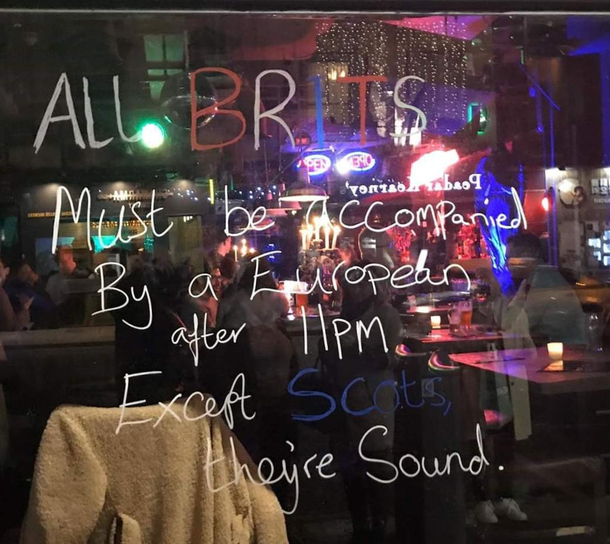 ALL BRITS
OPEN OPEN
Peadar Kearney's
Must be accompanied
By a European
after 11PM
Except Scots,
they're Sound.